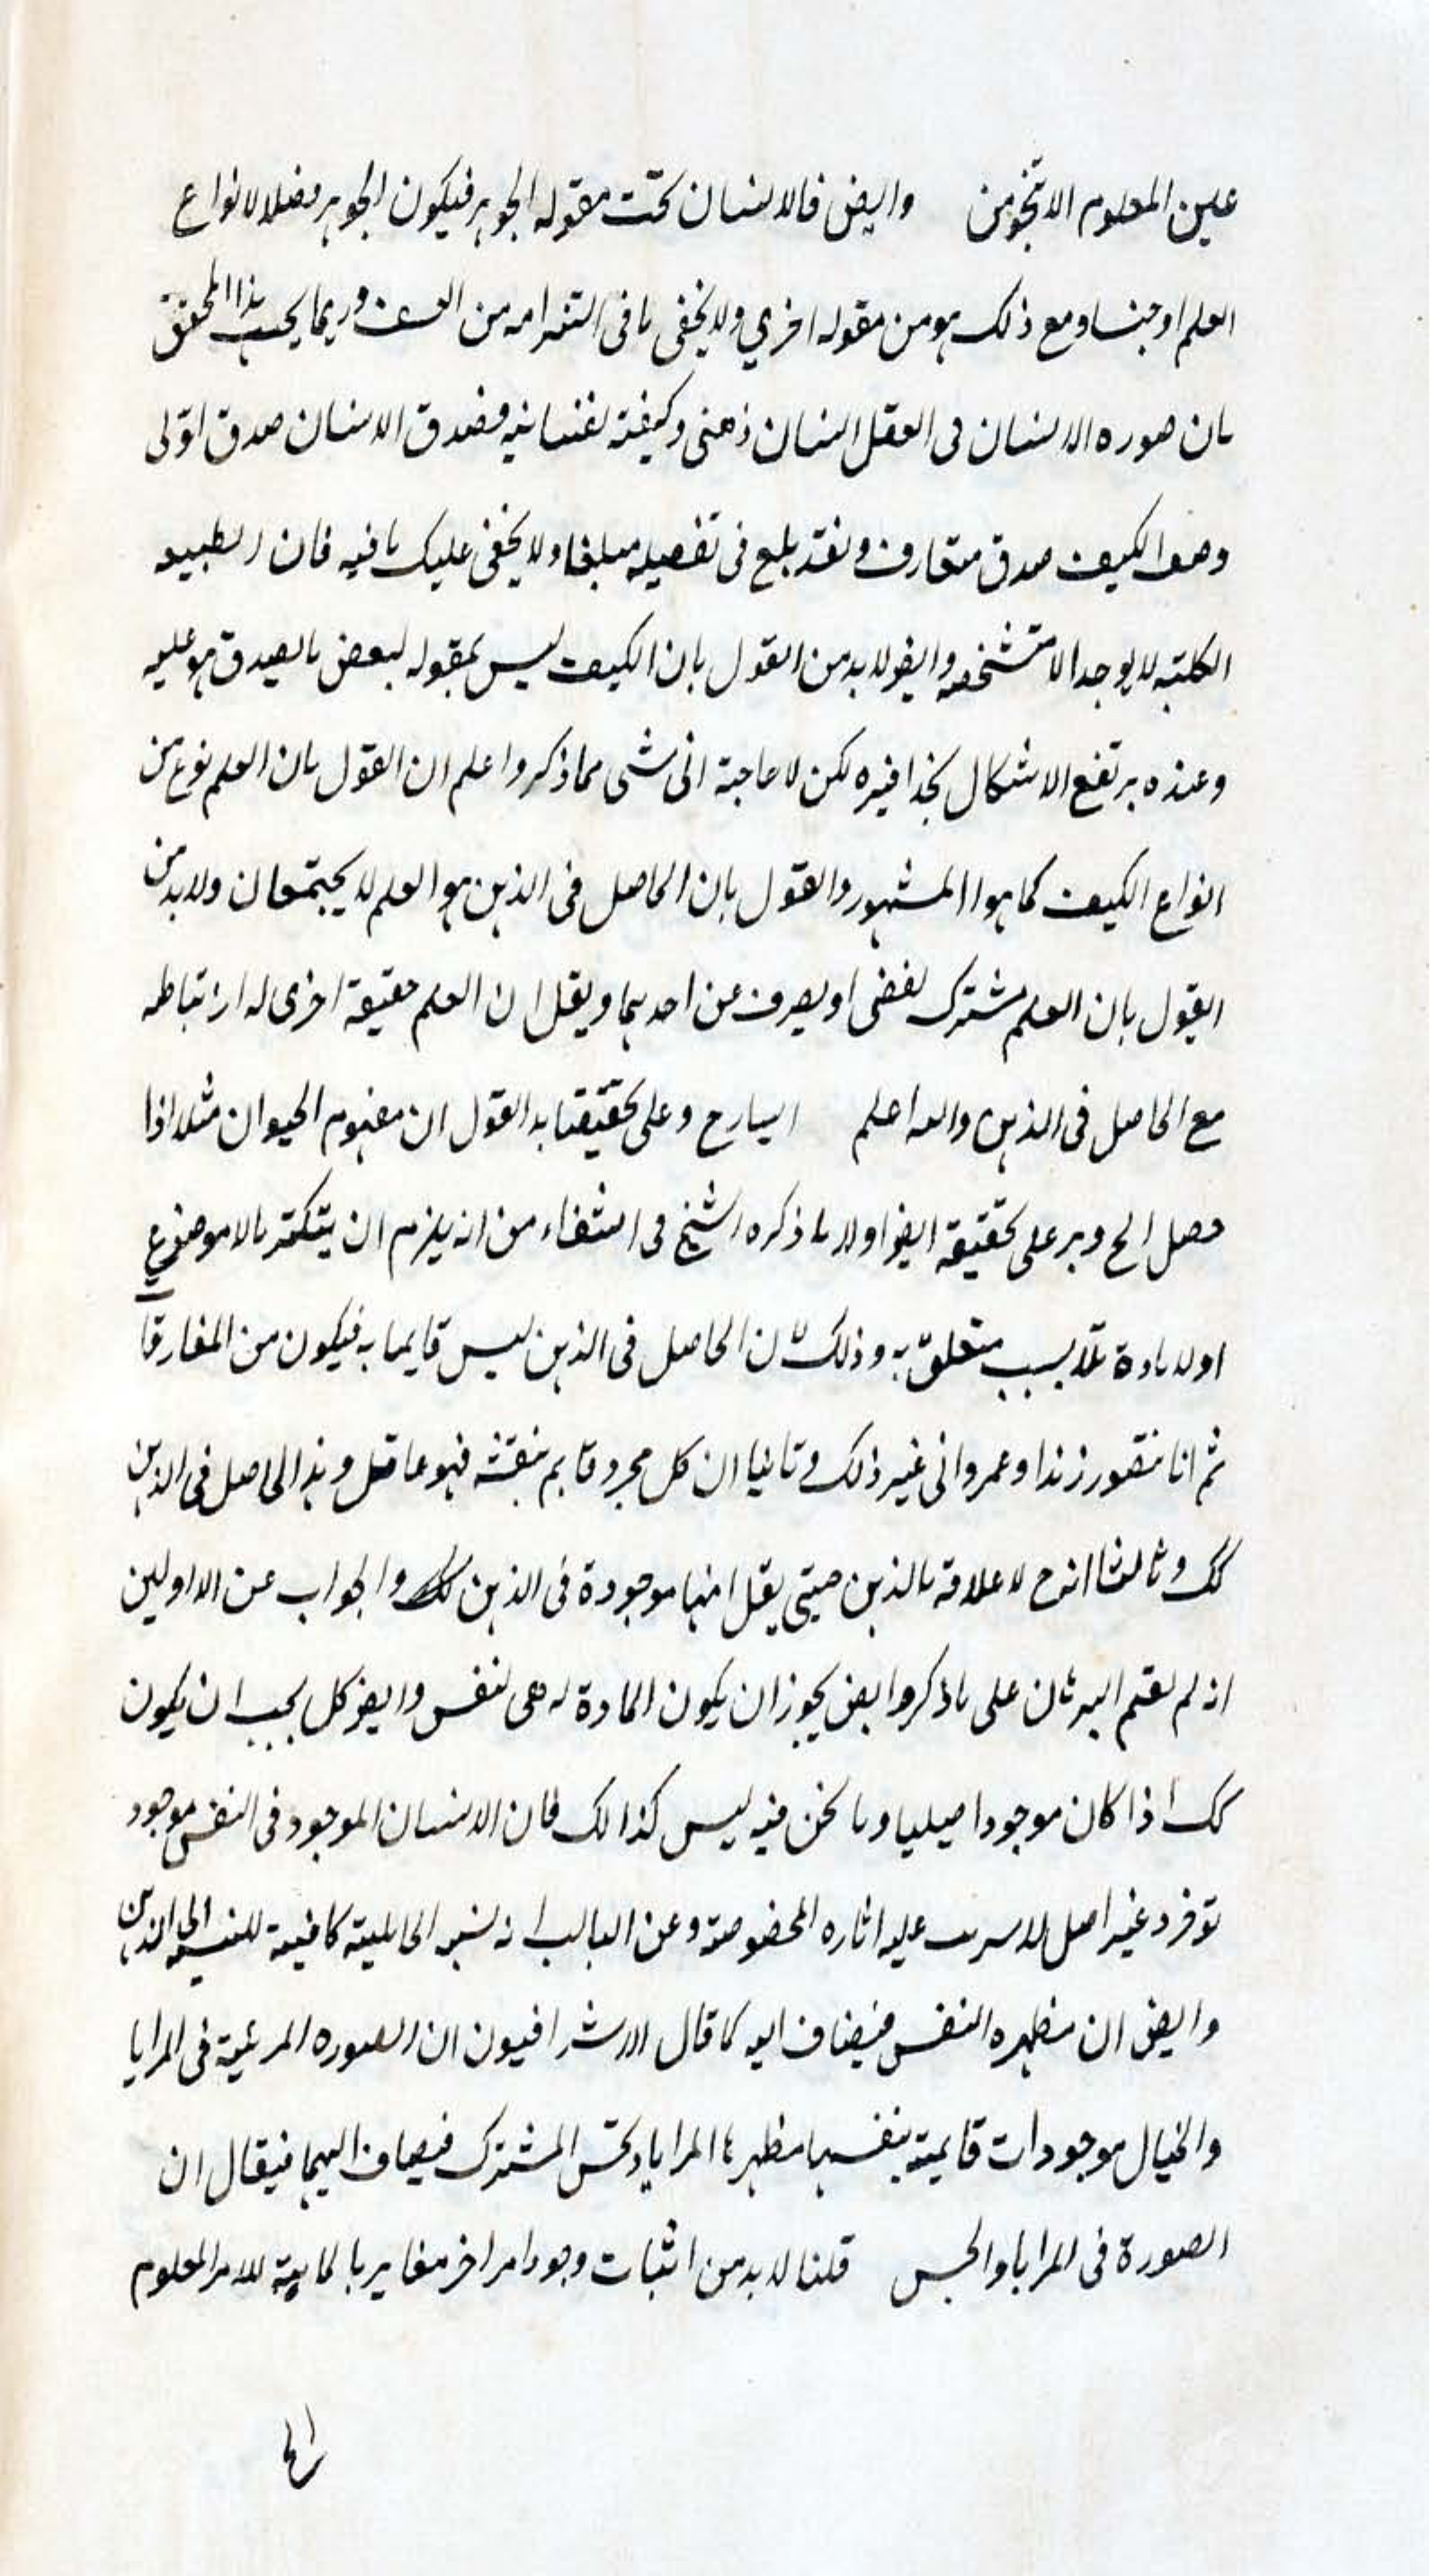 عين المعلوم الا بتجوز من وايض فالانسان تحت مقوله الجوهر فيكون الجوهر فصلا لانواع
العلم او جنسا ومع ذلك هو من مقوله اخري ولا يخفى ما فى التزامه من وربما يجيب هذا المحقق
بان صوره الانسان فى العقل انسان ذهنى وكيفية نفسانيه فصدق الانسان صدق اولى
وصدق الكيف صدق متعارف ولقد بلغ فى تفصيله مبلغا ولا يخفى عليك ما فيه فان الطبيعه
الكليته لا يوجد الا متشخصه وايضو لا بد من القول بان الكيف ليس بمقوله لبعض ما يصدق هو عليه
وعنده يرتفع الاشكال بحذافيره لكن لا حاجة الى شى مما ذكر واعلم ان القول بان العلم نوع من
انواع الكيف كما هو المشهور والقول بان الحاصل فى الذهن هو العلم لا يجتمعان ولا بد من
القول بان العلم مشترك لفضى او يصرف عن احديهما ويقل ان العلم حقيقة اخرى له ارتباطه
مع الحاصل فى الذهن والله اعلم الشارح وعلى تحقيقنا هذا القول ان مفهوم الحيوان مثلا اذا
حصل الح ويرد على تحقيقه ايضو اولا ما ذكره الشيخ فى الشفاء من انه يلزم ان يتكثر بالا موضوع
اولا مادة بلا سبب متعلق به وذلك لان الحاصل فى الذهن ليس قايما به فيكون من المفارقا
ثم انا نتصور زيدا وعمروا الى غير ذلك وثانيا ان كل مجرد قايم بنفسه فهو عاقل وهذا الحاصل فى الذهن
كك وثالثا انه ح لا علاقه بالذهن حتى يقل انها موجودة فى الذهن كك والجواب عن الاولين
انه لم يقم البرهان على ما ذكر وايض يجوز ان يكون المادة له هى لنفس وايضو كل يجب ان يكون
كك اذا كان موجودا اصيليا وما نحن فيه ليس كذالك فان الانسان الموجود فى النفس موجود
غير اصل لا يترتب عليه اثاره المخصوصة وعن الثالث انه نسبه الحالية كافية للنسبه الى الذهن
وايض ان مظهره النفس فيضاف اليه كما قال الاشراقيون ان الصوره المرئية فى المرايا
والخيال موجودات قايمة بنفسها مظهرها المرايا وحس المشترك فيضاف اليهما فيقال ان
الصورة فى المرايا والحس قلنا لا بد من اثبات وجود امر اخر مغاير بالماهية للامر المعلوم